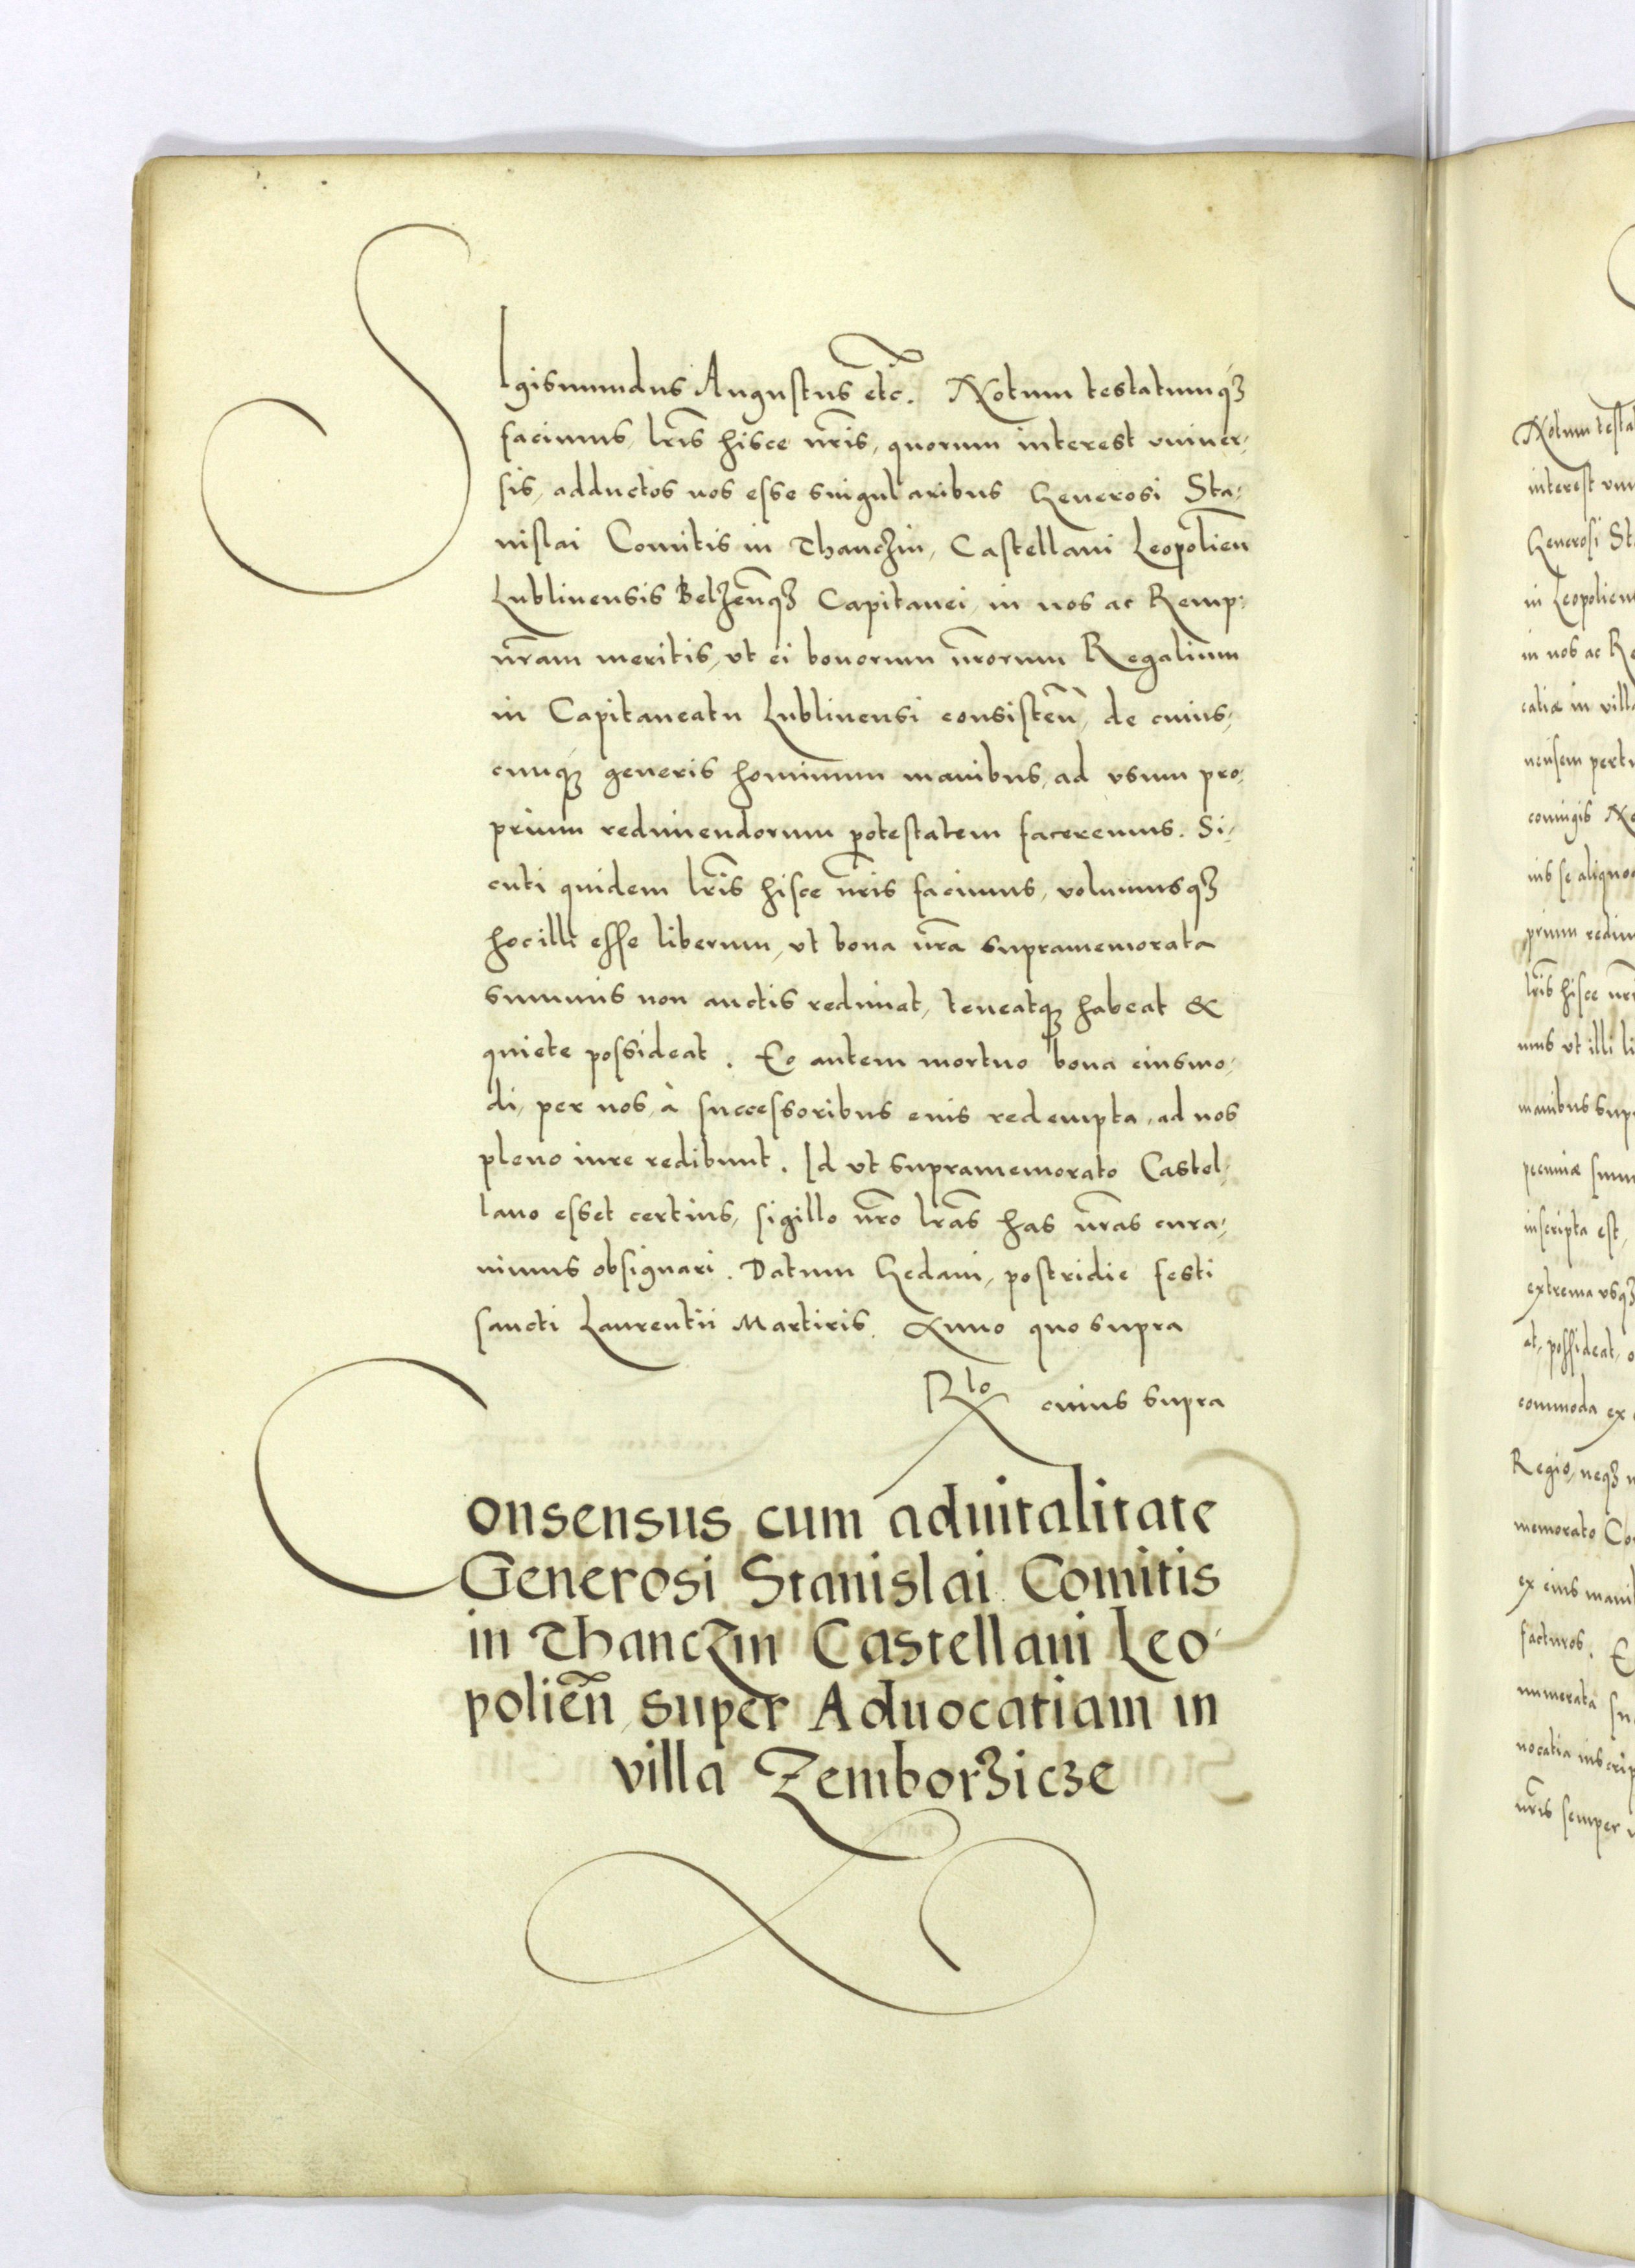 SIgismundus Augustus etc̃. Notum testatumqȝ
facimus, lr̃is hisce nr̃is, quorum interest vniuer-
sis, adductos nos esse singularibus Generosi Sta-
nislai Comitis in Thanczin, Castellani Leopolien̄
Lublinensis Belzen̄qȝ Capitanei, in nos ac Remp:
nr̃am meritis, vt ei bonorum nr̃orum Regalium
in Capitaneatu Lublinensi consisten̄, de cuius-
cunqȝ generis hominum manibus, ad vsum pro-
prium redimendorum potestatem faceremus. Si-
cuti quidem lr̃is hisce nr̃is facimus, volumusqȝ
hoc illi esse liberum, vt bona nr̃a supramemorata
summis non auctis redimat, teneatqȝ habeat &
quiete possideat. Eo autem mortuo bona eiusmo-
di, per nos, à successoribus eius redempta, ad nos
pleno iure redibunt. Id vt supramemorato Castel-
lano esset certius, sigillo nr̃o lr̃as has nr̃as cura-
uimus obsignari. Datum Gedani, postridie festi
sancti Laurentii Martiris. Anno quo supra
Rlo cuius supra
Consensus cum aduitalitate
Generosi Stanislai Comitis
in Thanczin Castellani Leo-
polien̄, super Aduocatiam in
villa Zemborzicze
Notum testa
interest vni
Generosi St
in Leopolien
in nos ac Re
catiæ in vill
nensem perti
coniugis No
ius se aliquo
prium redim
lr̃is hisce nr̃i
mus vt illi li
manibus supr
pecuniæ sum
inscripta est,
extrema vsqȝ
at, possideat, o
commoda ex
Regio, neqȝ
memorato Co
ex eius mani
facturos. E
numerata su
uocatia inscrip
nr̃is semper